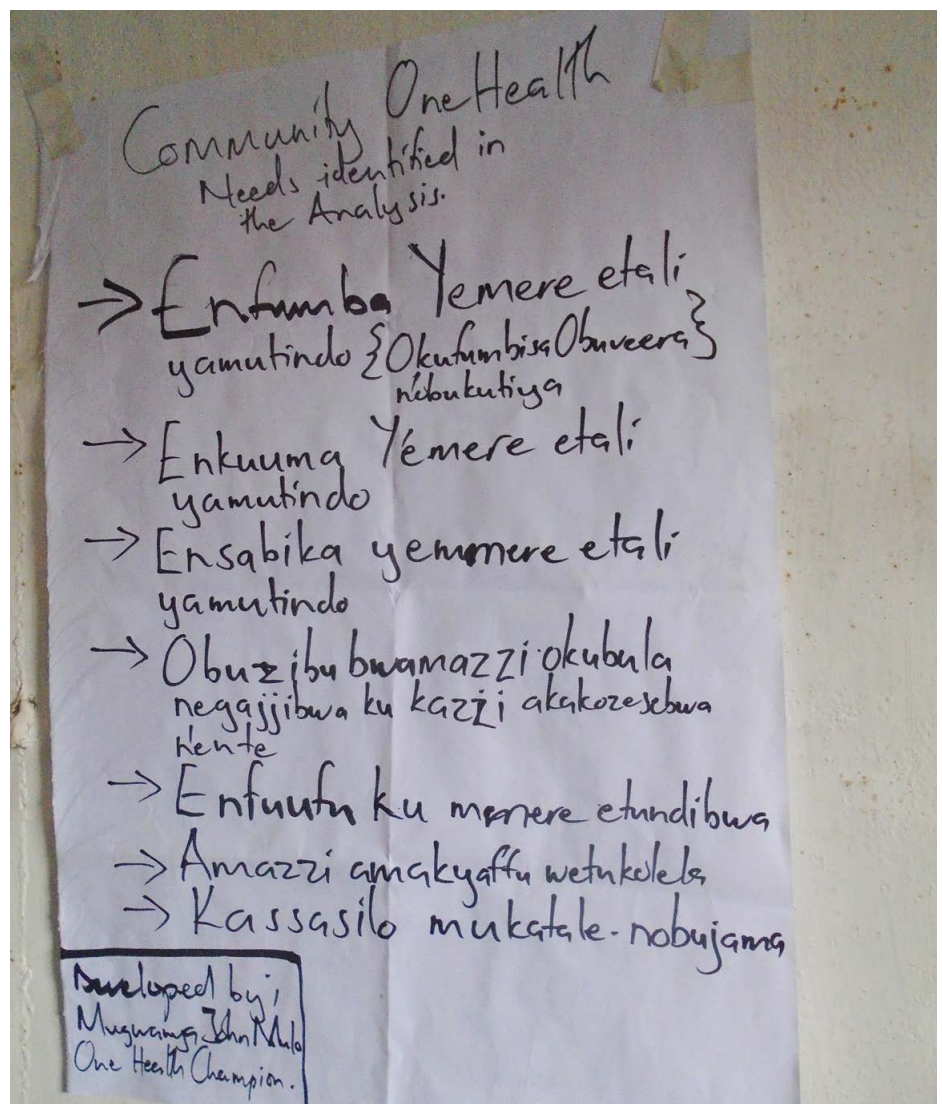 Community One Health
Needs identified in
the Analysis.
→ Enfumba Yemere etali
yamutindo {Okufumbisa Obuveera}
n'ebukutiya
→ Enkuuma Yemere etali
yamutindo
→ Ensabika yemmere etali
yamutindo
→ Obuzibu bwamazzi okubula
negajjibwa ku kazzi akakozesebwa
n'ente
→ Enfuufu ku memere etundibwa
→ Amazzi amakyaffu wetukolela
→ Kassasilo mukatale - nobujama
Developed by;
Mugwanya John
One Health Champion.